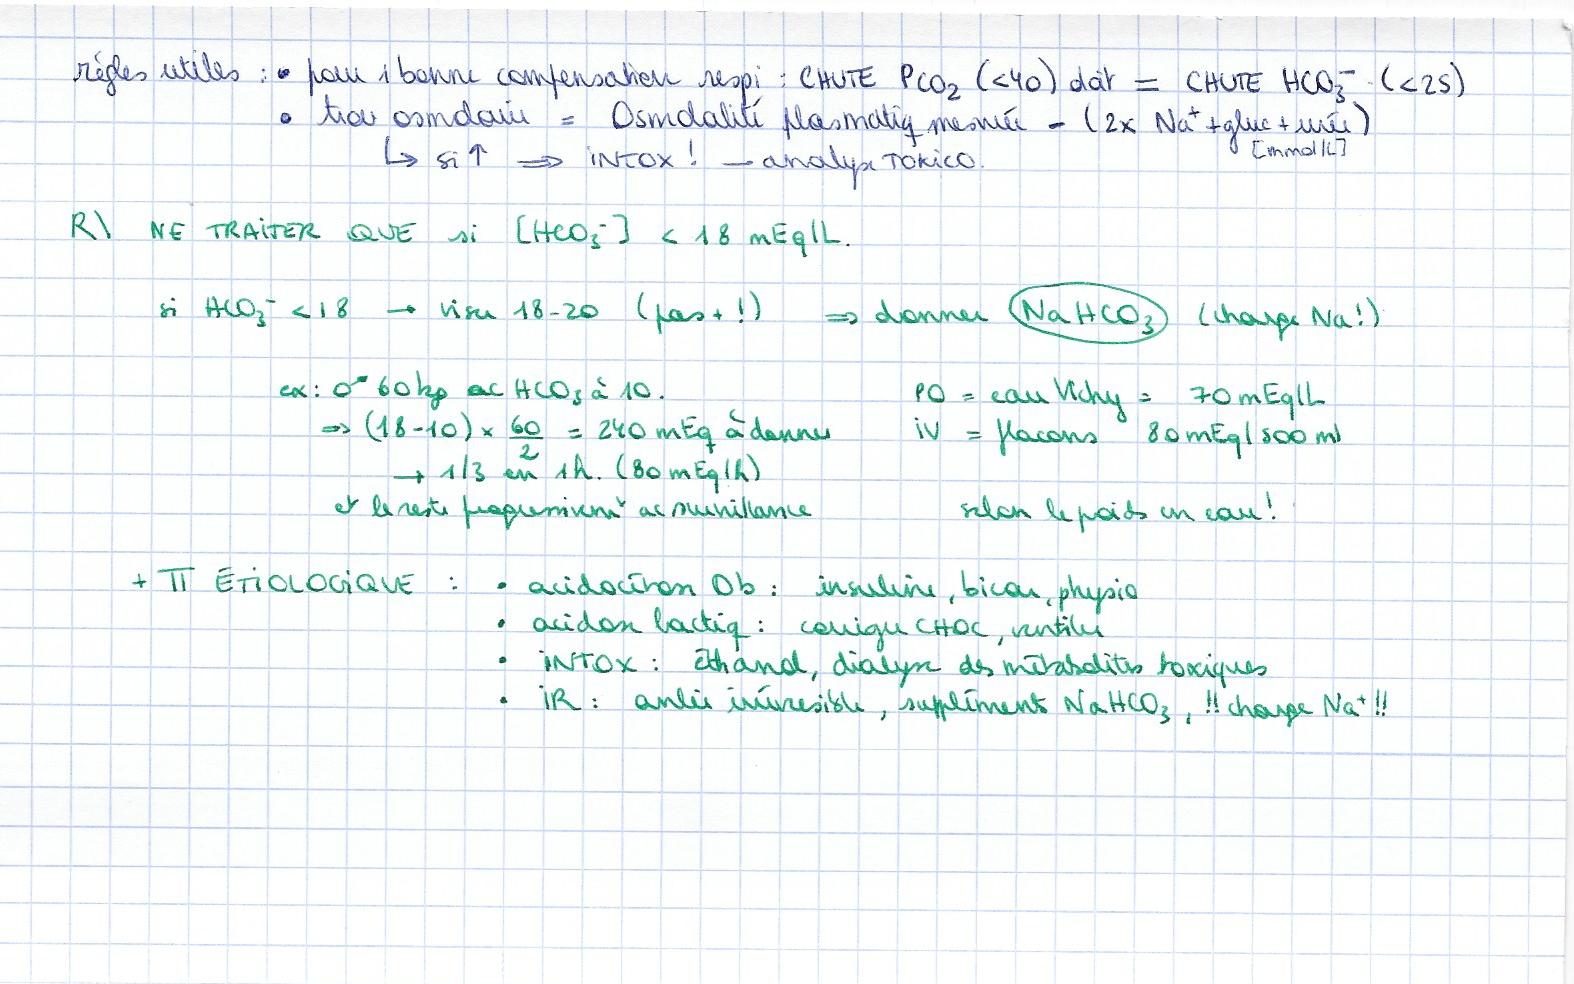 règles utiles : • pour 1 bonne compensation respi : CHUTE PCO₂ (<40) doit = CHUTE HCO₃⁻ (<25)
• trou osmolaire = Osmolalité plasmatiq mesurée - (2x Na⁺ + gluc + urée)
[mmol/L]
↳ si ↑ ⇒ iNTOX ! — analyse TOXICO.
R\ NE TRAITER QUE si [HCO₃⁻] < 18 mEq/L.
si HCO₃⁻ <18 → viser 18-20 (pas + !) ⇒ donner NaHCO₃ (charge Na!)
ex : ♂ 60kg ac HCO₃ à 10.
⇒ (18-10) x 60/2 = 240 mEq à donner
→ 1/3 en 1h. (80 mEq/h)
et le reste progressivemt ac surveillance
PO = eau Vichy = 70 mEq/L
iV = flacons 80 mEq/500 ml
selon le poids en eau !
+ TT ÉTiOLOGiQUE : • acidocétose Db : insuline, bicar, physio
• acidose lactiq : corriger CHOC, ventiler
• iNTOX : éthanol, dialyse des métabolites toxiques
• iR : irréversible, suppléments NaHCO₃, !! charge Na⁺ !!